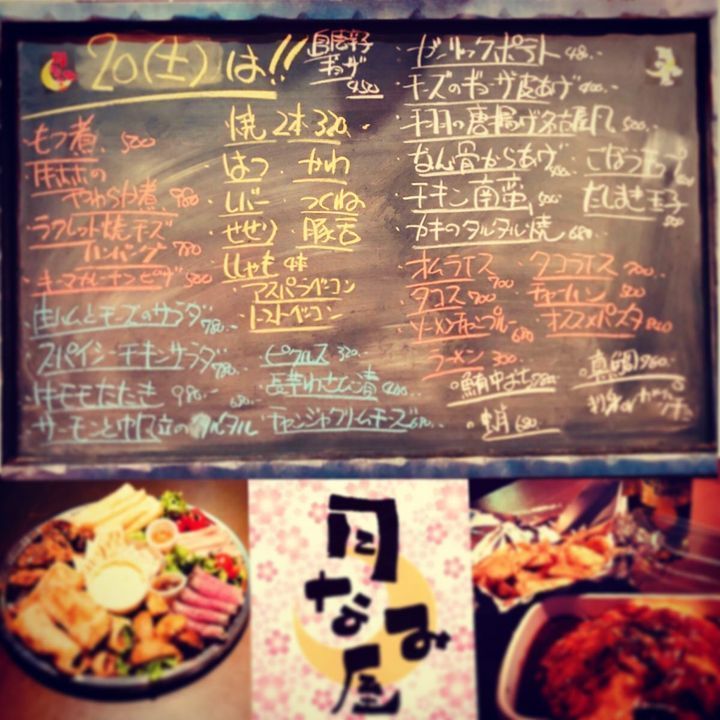 20(土)は!!
自家製
ギョーザ
450
・もつ煮、500
・豚ホホの
やわらか煮、980
・ラクレット焼チーズ
ハンバーグ 780
・キーマカレーナンピザ 500
・生ハムとチーズのサラダ 780.-
・スパイシーチキンサラダ 780.-
・牛モモたたき 980.-
サーモンと帆立のタルタル 680.-
焼 2本 320.-
・はつ ・かわ
・レバー ・つくね
・せせり ・豚舌
・ししゃも 4本
・アスパラベーコン
・トマトベーコン
・ピクルス 320..
・長芋わさび漬 400..
・チャンジャクリームチーズ 480..
・ガーリックポテト 480..
・チーズのギョーザ皮あげ 400.-
・手羽の唐揚げ名古屋風 500.-
・なん骨からあげ 500
・ごぼうチップ
・チキン南蛮 500
だしまき玉子 500
・カキのタルタル焼 680..
・オムライス 700
・タコライス 700..
・タコス 700
・チャーハン 500
・ソーメンチャンプルー 680
・オススメパスタ
・ラーメン 300..
・鮪中おち 780..
・真鯛 980..
月なみ屋